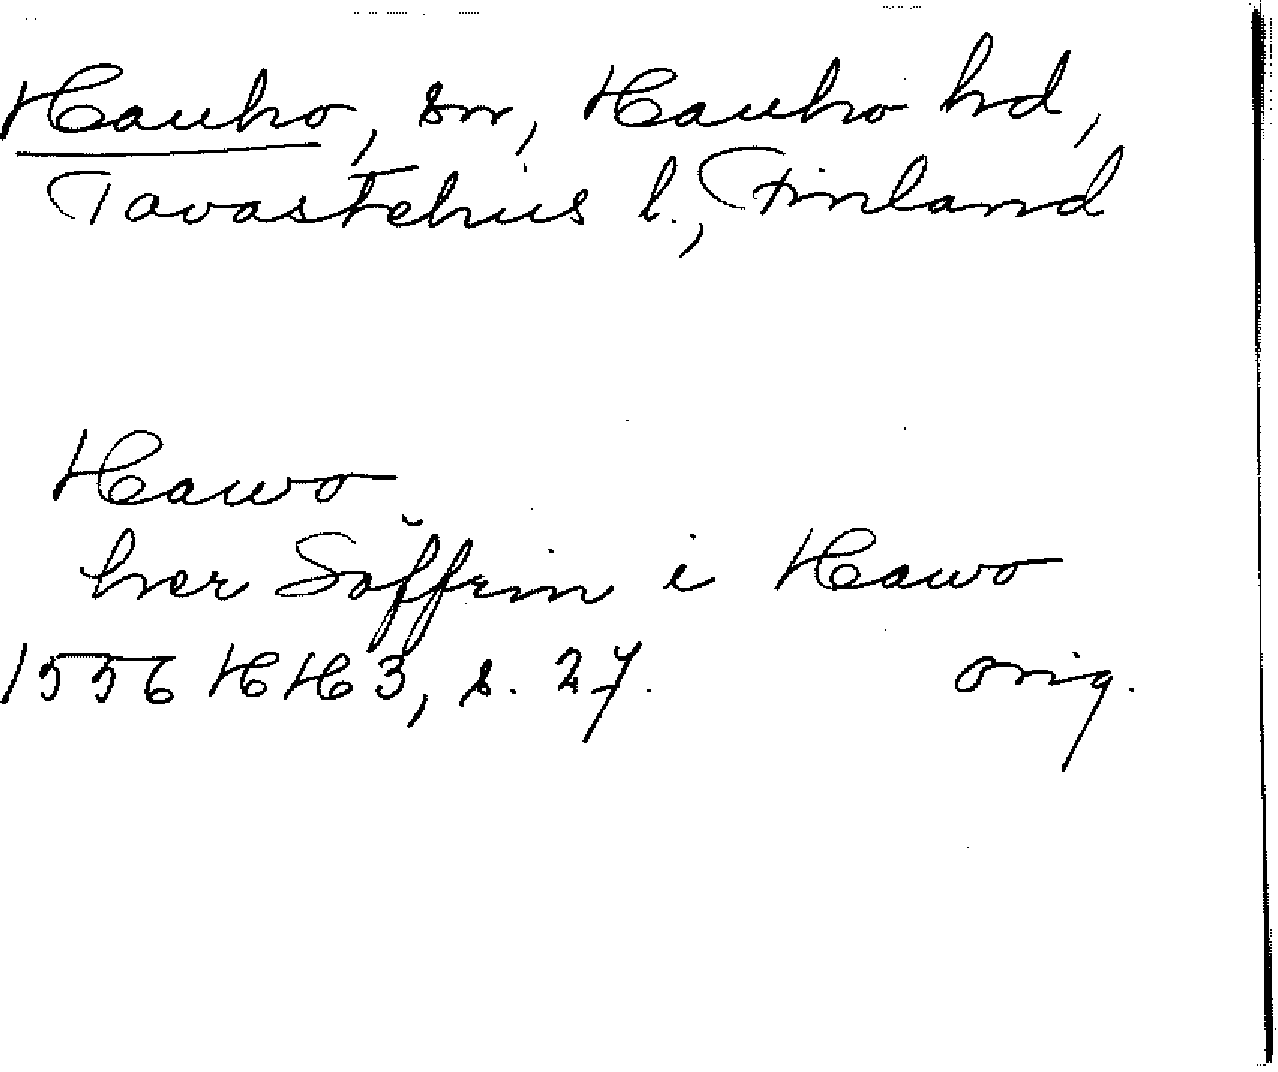 Hauho, sn, Hauho hd,
Tavastehus l., Finland
Hawo
her Söffrin i Hawo
1556 HH 3, s. 27. orig.